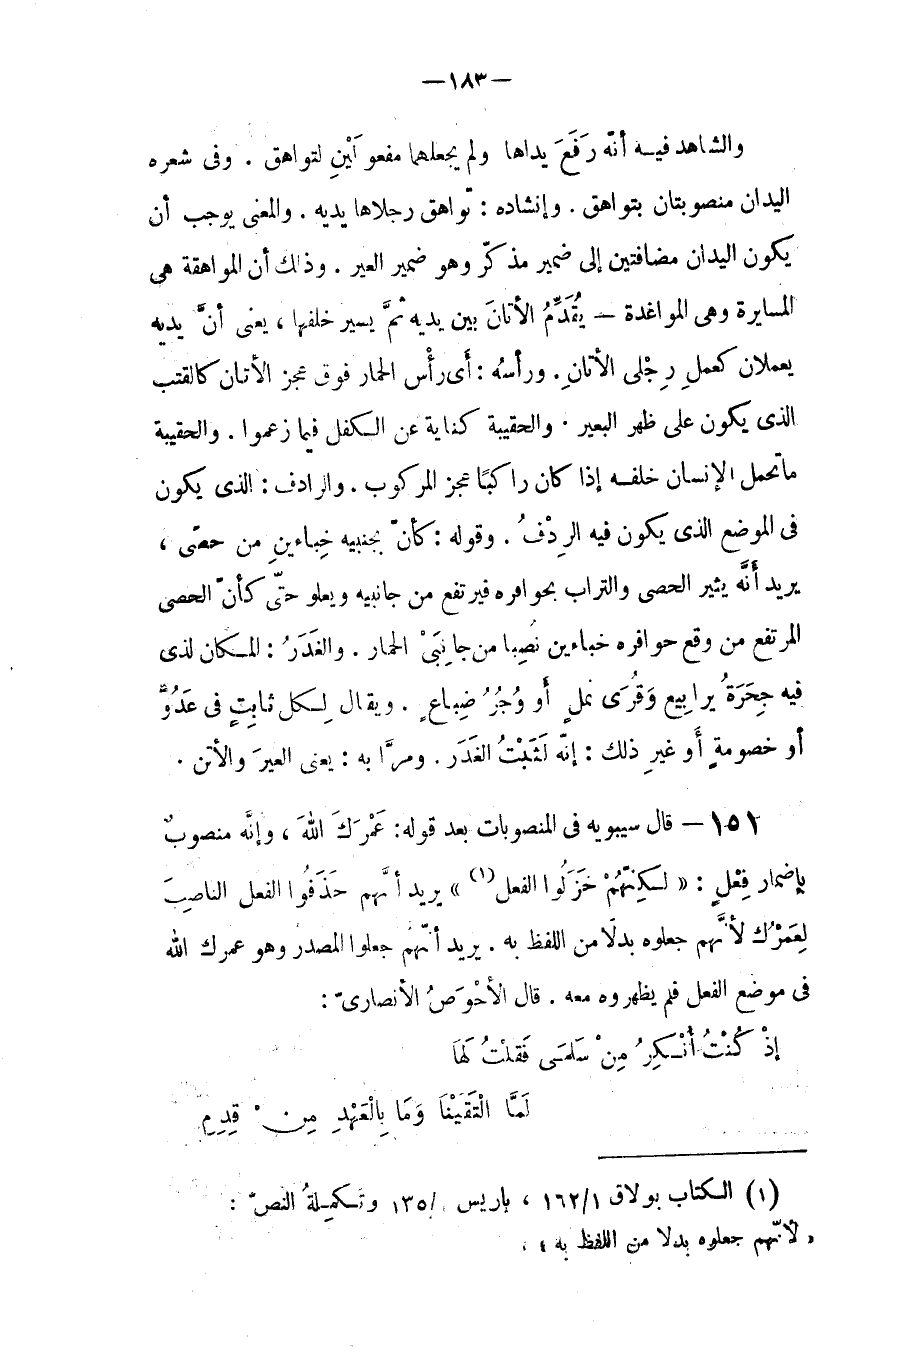 — ١٨٣ —
والشاهد فيـه أنّه رَفَعَ يداها ولم يجعلهما مفعولَيْنِ لتواهق . وفى شعره
اليدان منصوبتان بتواهق . وإنشاده : تُواهق رجلاها يديه . والمعنى يوجب أن
يكون اليدان مضافتين إلى ضمير مذكّر وهو ضمير العير . وذلك أن المواهقة هى
المسايرة وهى المواغدة — يُقَدِّمُ الأتانَ بين يديه ثمَّ يسير خلفها ، يعنى أنَّ يديه
يعملان كعملِ رِجْلى الأتانِ . ورأسُه : أى رأْس الحمار فوق عجز الأتان كالقتب
الذى يكون على ظهر البعير . والحقيبة كناية عن الـكفل فيما زعموا . والحقيبة
ما تحمل الإنسان خلفـه إذا كان راكبًا عجز المركوب . والرادف : الذى يكون
فى الموضع الذى يكون فيه الرِدْفُ . وقوله : كأنّ بجنبيه خِباءينِ من حصًى ،
يريد أَنَّه يثير الحصى والتراب بحوافره فيرتفع من جانبيه ويعلو حتّى كأنّ الحصى
المرتفع من وقع حوافره خباءين نُصِبا من جانِبَىْ الحمار . والغَدَرُ : المـكان لذى
فيه جِحَرَةُ يرابِيع وَقُرَى نملٍ أَو وُجُرُ ضِباعٍ . ويقال لِـكل ثابِتٍ فى عَدُوٍّ
أو خصومةٍ أَو غيرِ ذلك : إنّه لَثَبَتُ الغَدَر . ومرَّا به : يعنى العيرَ والأتن .
١٥١ — قال سيبويه فى المنصوبات بعد قوله : عَمْرَكَ اللهَ ، وإنَّه منصوبٌ
بإضمار فِعْلٍ : « لـكِنّهُمْ خَزَلُوا الفعل (١) » يريد أنَّهم حَذَفُوا الفعل الناصِبَ
لِعَمْرَك لأنَّهم جعلوه بدلًا من اللفظ به . يريد أنّهم جعلوا المصدر وهو عمرك الله
فى موضع الفعل فلم يظهروه معه . قال الأحْوَصُ الأنصارىّ :
إِذْ كُنْتُ أُنْـكِرُ مِنْ سَلْمَى فَقلْتُ لَهَا
لَمَّا الْتَقَيْنَا وَمَا بِالْعَهْدِ مِن قِدِمِ
(١) الـكتاب بولاق ١/١٦٢ ، باريس ١/١٣٥ وتـكمـلةُ النصّ :
« لأنّهم جعلوه بدلا من اللفظ به » .